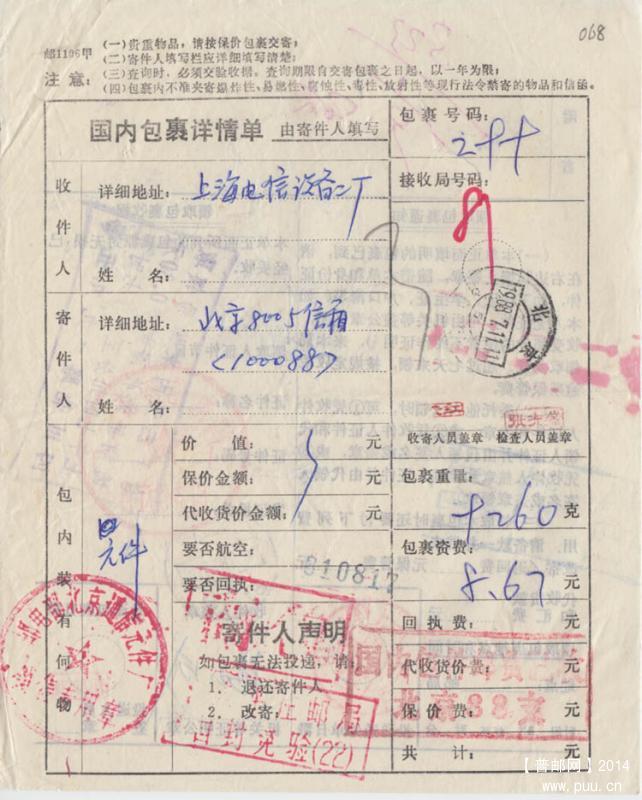 068
邮1106甲
注意：
(一)贵重物品，请按保价包裹交寄；
(二)寄件人填写栏应详细填写清楚；
(三)查询时，必须交验收据。查询期限自交寄包裹之日起，以一年为限；
(四)包裹内不准夹寄爆炸性、易燃性、腐蚀性、毒性、放射性等现行法令禁寄的物品和信函。
国内包裹详情单 由寄件人填写
包裹号码：
接收局号码：
收件人
详细地址：上海电信设备二厂
姓名：
寄件人
详细地址：北京8005信箱
<100088>
姓名：
收寄人员盖章 检查人员盖章
包内装有何物
元件
价值： 元
保价金额： 元
代收货价金额： 元
要否航空：
要否回执：
010817
包裹重量： 克
包裹资费： 8.67 元
回执费： 元
代收货价费： 元
保价费： 元
共计： 元
寄件人声明
如包裹无法投递，请：
1．退还寄件人
2．改寄：
北京88支
自封免验(22)
【普邮网】2014
www.puu.cn